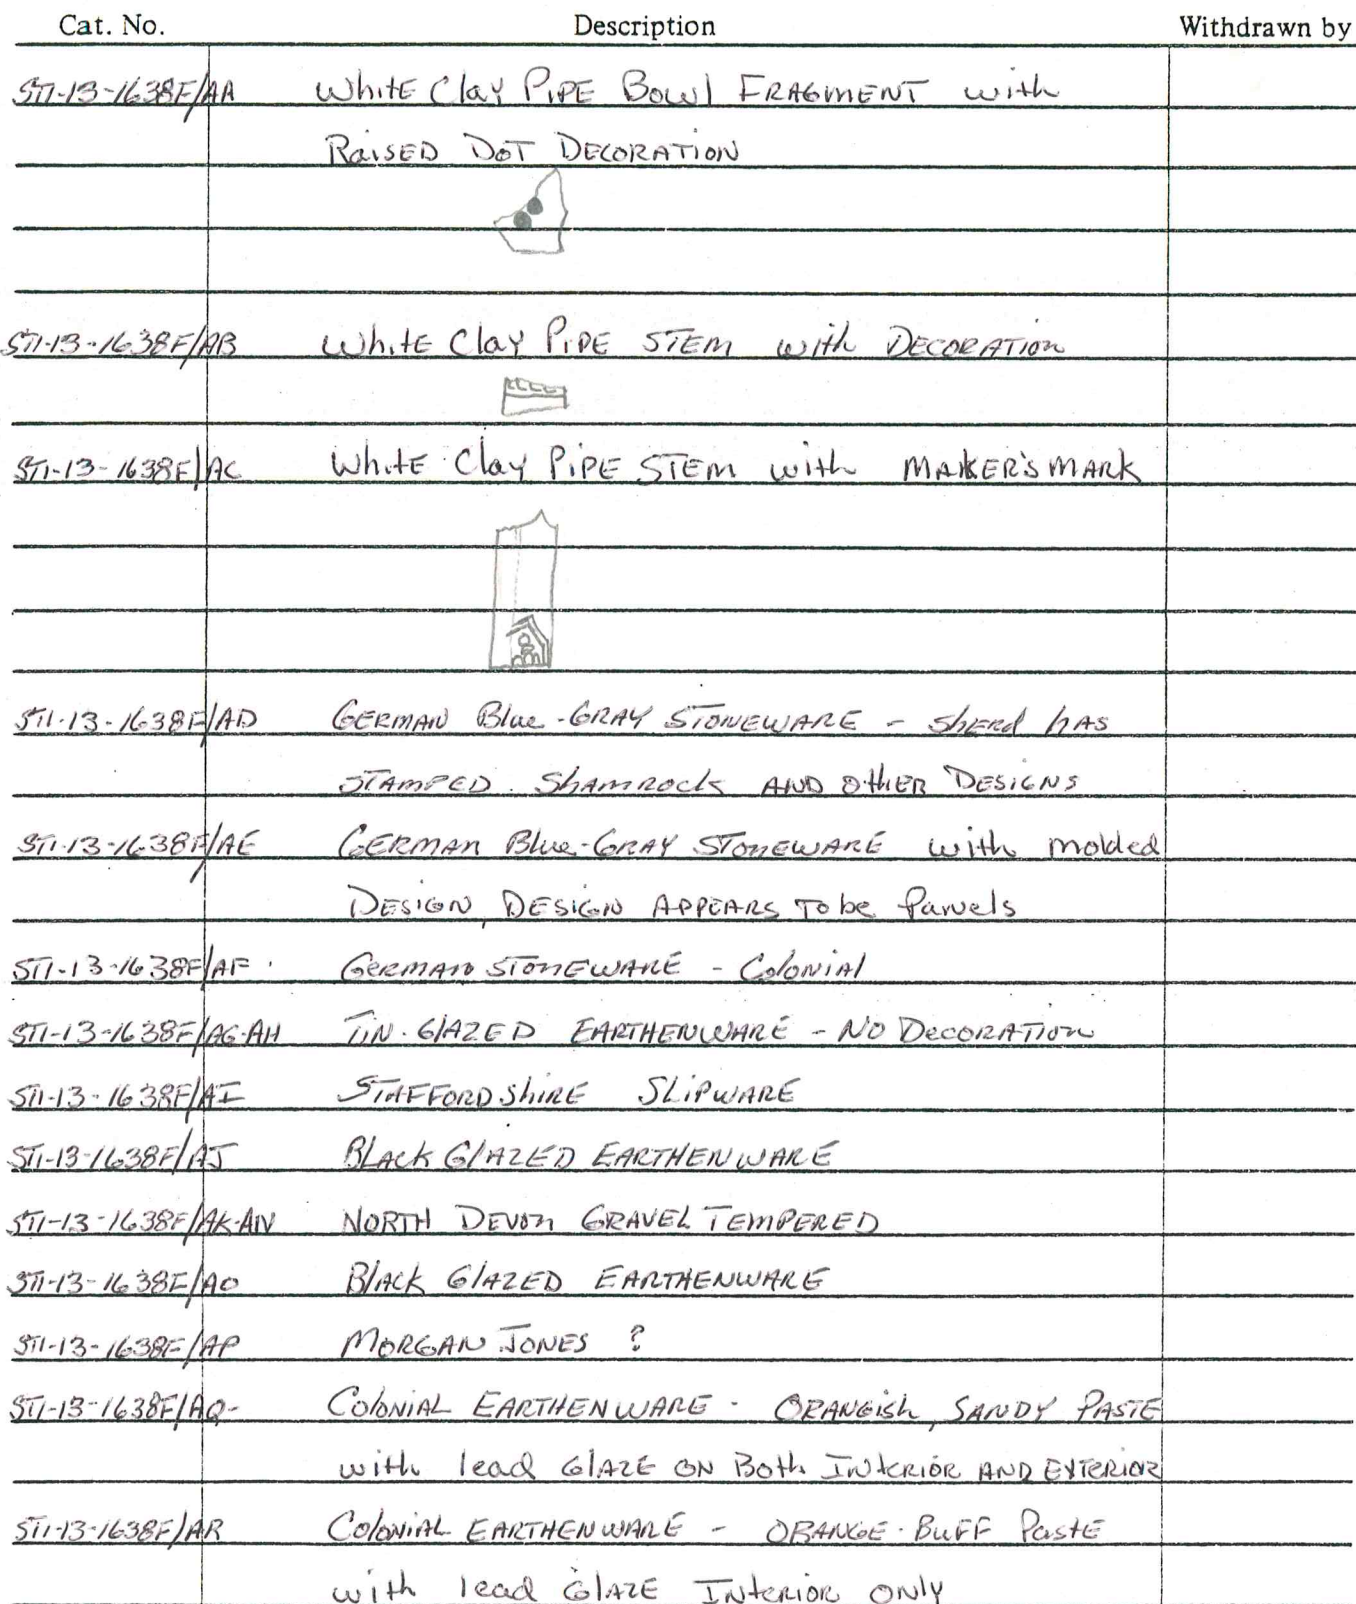 Cat. No. Description Withdrawn by
ST1-13-1638F/AA White Clay PIPE Bowl FRAGMENT with
RaisED DOT DECORATION
ST1-13-1638F/AB White Clay PIPE STEM with DECORATION
ST1-13-1638F/AC White Clay PIPE STEM with MAKER'S MARK
ST1-13-1638F/AD GERMAN Blue-GRAY STONEWARE - Sherd has
STAMPED Shamrock AND OTHER DESIGNS
ST1-13-1638F/AE GERMAN Blue-GRAY STONEWARE with molded
DESIGN, DESIGN APPEARS To be Panels
ST1-13-1638F/AF GERMAN STONEWARE - Colonial
ST1-13-1638F/AG-AH TIN-GLAZED EARTHENWARE - NO DECORATION
ST1-13-1638F/AI STAFFORDSHIRE SLIPWARE
ST1-13-1638F/AJ BLACK GLAZED EARTHENWARE
ST1-13-1638F/AK-AN NORTH DEVON GRAVEL TEMPERED
ST1-13-1638F/AO BLACK GLAZED EARTHENWARE
ST1-13-1638F/AP MORGAN JONES ?
ST1-13-1638F/AQ- COLONIAL EARTHENWARE - ORANGISH, SANDY PASTE
with lead GLAZE ON BOTH INTERIOR AND EXTERIOR
ST1-13-1638F/AR COLONIAL EARTHENWARE - ORANGE-BUFF PASTE
with lead GLAZE INTERIOR ONLY